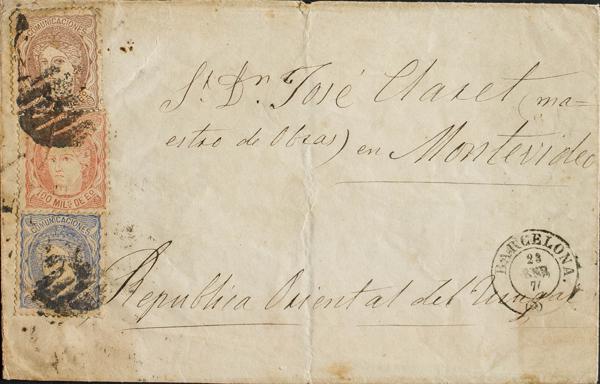 COMUNICACIONES
100 MILS DE EO
COMUNICACIONES
Sr. Dn. José Claret (ma=
estro de Obras) en Montevideo
Republica Oriental del Uruguay
BARCELONA.
23
ENE
7